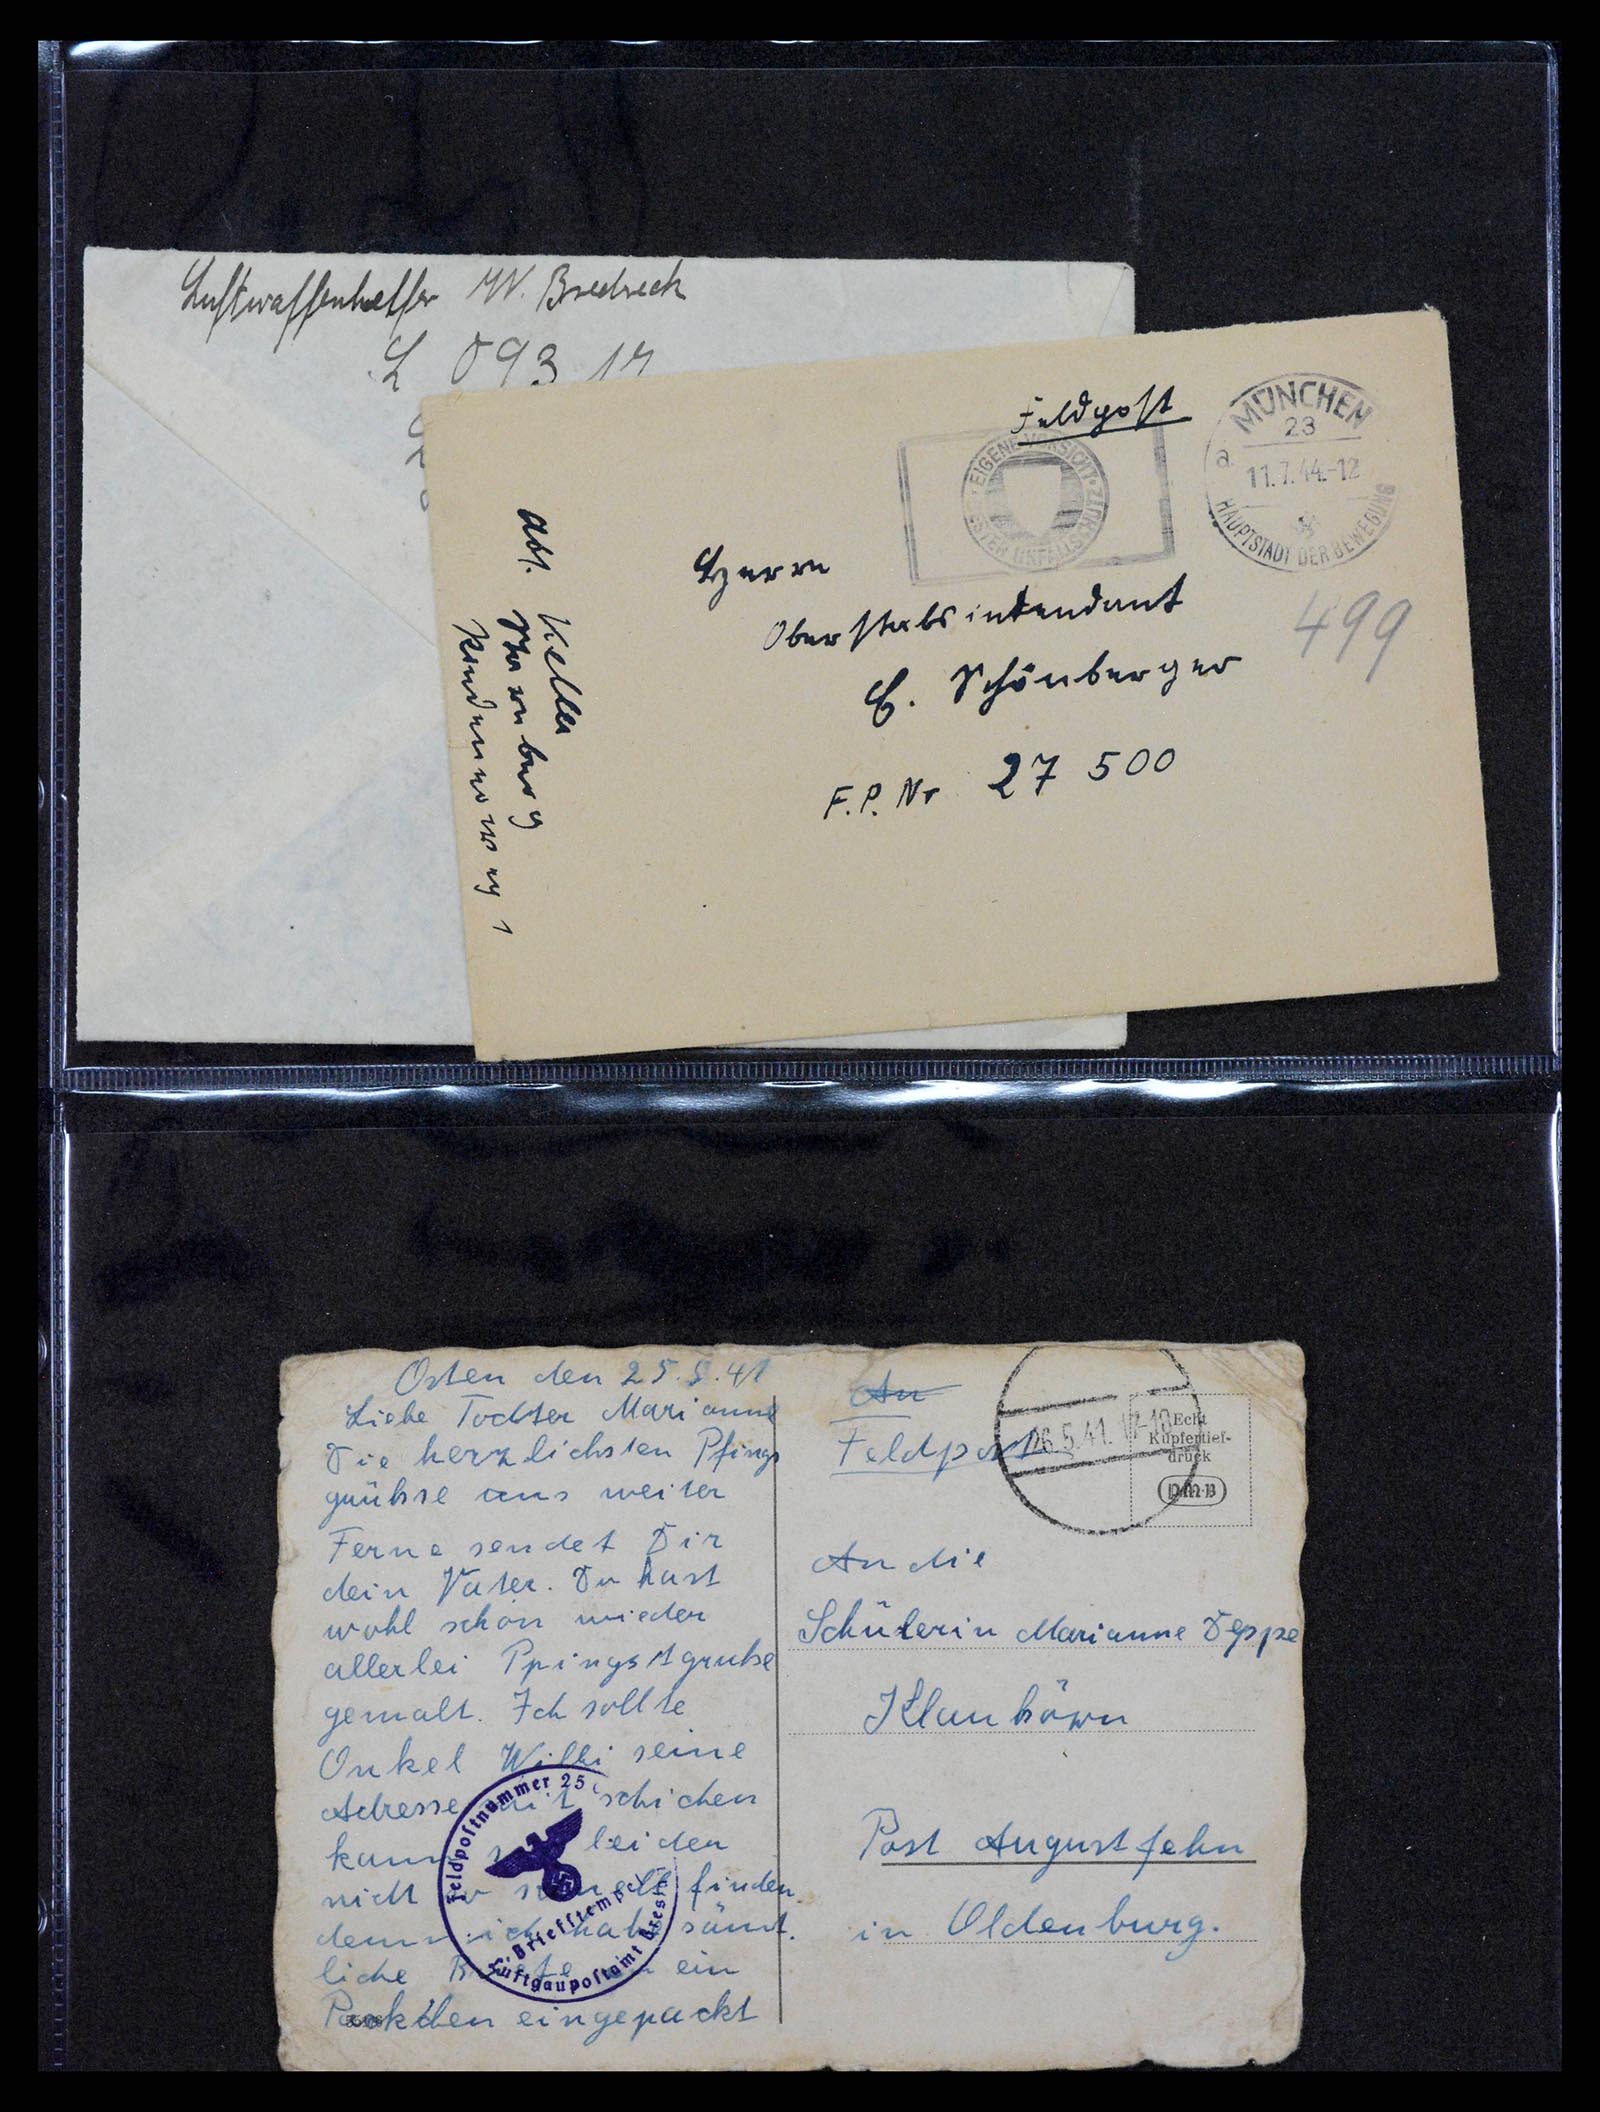 Luftwaffenhelfer W. Bredreck
L 093 17
Feldpost
MÜNCHEN
23
a
11.7.44.-12
HAUPTSTADT DER BEWEGUNG
EIGENE VORSICHT
UNFALLSCHUTZ
499
Herrn
Oberstabsintendant
E. Schönberger
F.P. Nr 27 500
Abs. Keller
Starnberg
1
Osten den 25.5.41
Liebe Tochter Marianne
Die herzlichsten Pfings
grühse aus weiter
Ferne sendet Dir
dein Vater. Du hast
wohl schon wieder
allerlei Ppingstgruhse
gemalt. Ich sollte
Onkel Willi seine
Adresse mit schicken
kann leider
nicht so schnell finden
denn ich hab sämt.
liche Briefe ein
Packchen eingepackt
Feldpostnummer 25
Briefstempel
Luftgaupostamt
An
Feldpost
26.5.41.17-18
Echt
Kupfertief-
druck
An die
Schülerin Marianne Deppe
Klauhörn
Post Augustfehn
in Oldenburg.